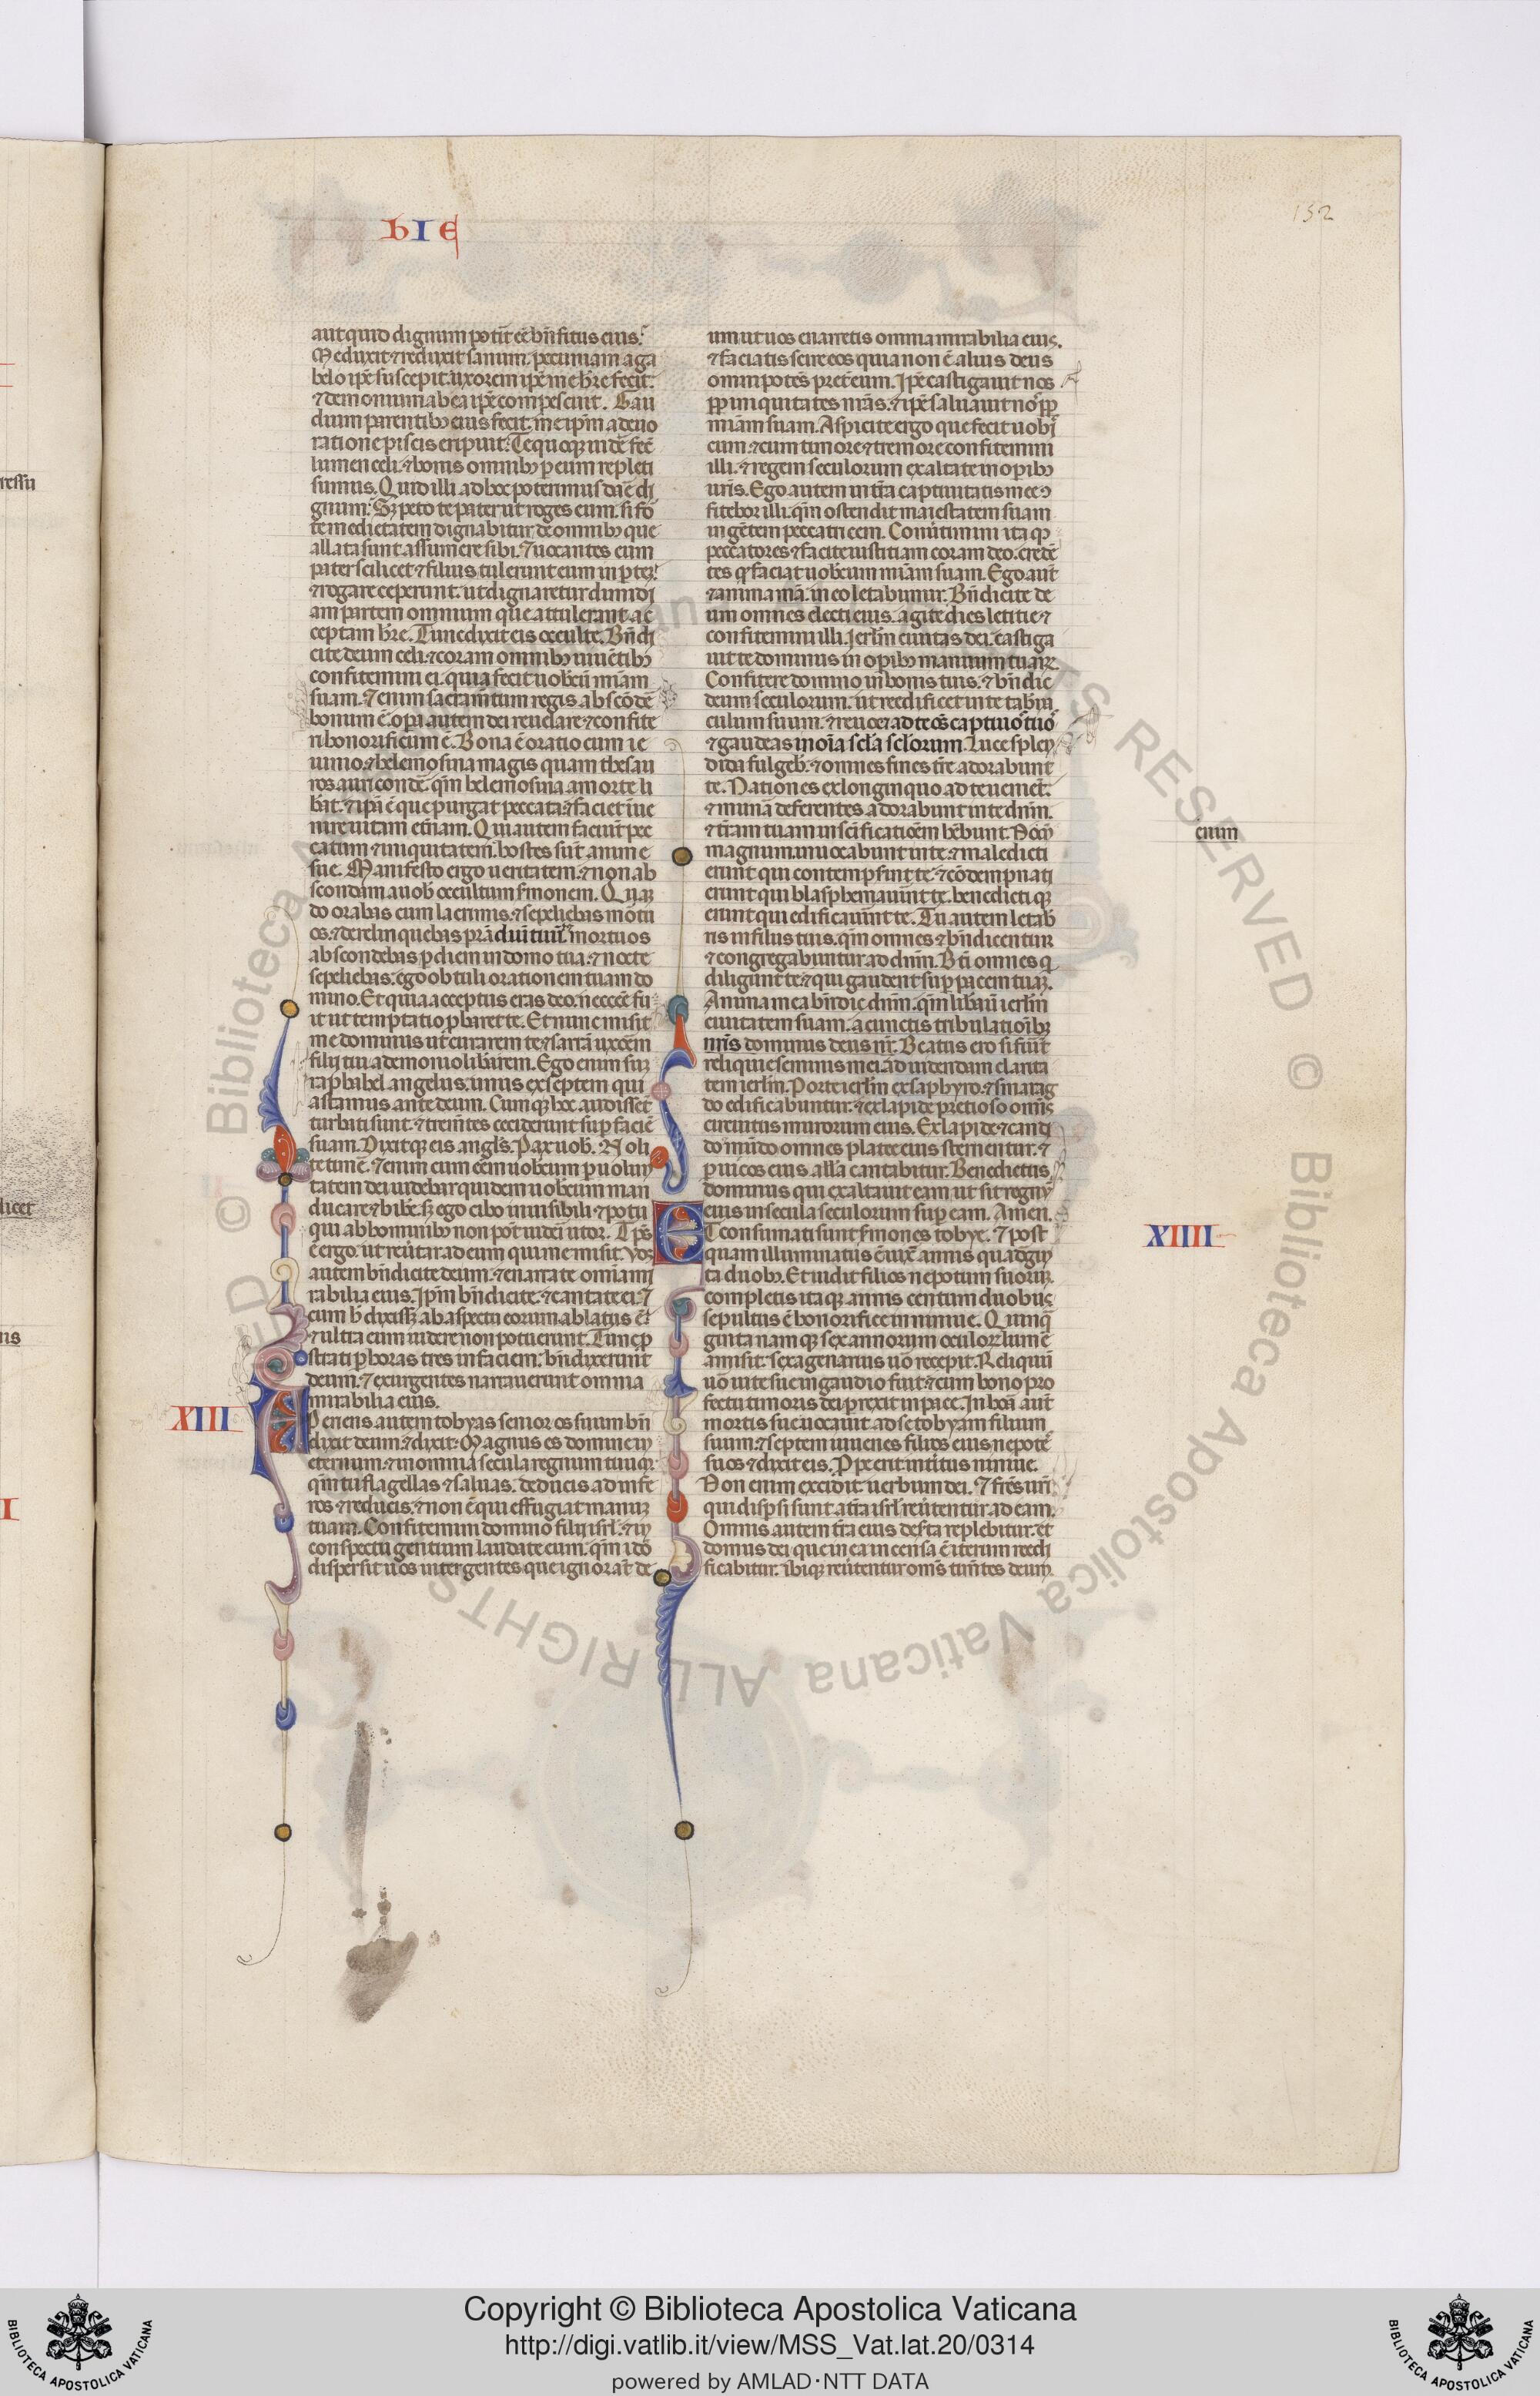 152
bIE
aut quid dignum potit eē bn̄fitus eius.
Me duxit ⁊ reduxit sanum. pecuniam a ga
belo ip̄e suscepit. uxorem ip̄e me hr̄e fecit.
⁊ demonium ab ea ip̄e compescuit. Gau
dium parentibꝫ eius fecit. me ip̄m a deuo
ratione piscis eripuit. Te quoqꝫ uidē fec̄
lumen celi. ⁊ bonis omnibꝫ p eum repleti
sumus. Quid illi ad hoc poterimus dar̄e di
gnum. Sꝫ peto te pater ut roges eum. si for
te medietatem dignabitur de omnibꝫ que
allata sunt assumere sibi. ⁊ uocantes eum
pater scilicet ⁊ filius tulerunt eum in pteꝫ.
⁊ rogare ceperunt. ut dignaretur dimidi
am partem omnium que attulerant ac
ceptam hr̄e. Tunc dixit eis occulte. Bn̄di
cite deum celi. ⁊ coram omnibꝫ uiuētibꝫ
confitemini ei. quia fecit uobcū miam
suam. ⁊ enim sacram̄tum regis abscōde
bonum ē. opa autem dei reuelare ⁊ confite
ri honorificum ē. Bona ē oratio cum ie
iunio. ⁊ helemosina magis quam thesau
ros auri conde. qm̄ helemosina a morte li
bat. ⁊ ipa ē que purgat peccata. ⁊ faciet iue
nire uitam etnam. Qui autem faciūt pec
catum ⁊ iniquitatem. hostes sūt anime
sue. Manifesto ergo ueritatem. ⁊ non ab
scondam a uob occultum smonem. Quan
do orabas cum lacrimis. ⁊ sepeliebas mortu
os. ⁊ derelinquebas prā duī tuū. mortuos
abscondebas p diem in domo tua. ⁊ nocte
sepeliebas. ego obtuli orationem tuam do
mino. Et quia acceptus eras deo. necesse fu
it ut temptatio pbaret te. Et nunc misit
me dominus ut curarem te. ⁊ sarrā uxorē
filij tui a demonio libarem. Ego enim sum
raphahel angelus. unus ex septem qui
astamus ante deum. Cumqꝫ hec audissēt
turbati sunt. ⁊ trem̄tes ceciderunt sup faciē
suam. Dixitqꝫ eis angls. Pax uob. Noli
te timē. ⁊ enim cum eēm uobcum p uolun
tatem dei uidebar quidem uobcum man
ducare ⁊ bibē. sꝫ ego cibo inuisibili ⁊ potu
qui ab hominibꝫ non pōt uideri utor. Tp̄s
ē ergo. ut reutar ad eum qui me misit. Vos
autem bn̄dicite deum. ⁊ enarrate omia mi
rabilia eius. Ipm bn̄dicite. ⁊ cantate ei. ⁊
cum h dixissꝫ ab aspectu eorum ablatus ē.
⁊ ultra eum uidere non potuerunt. Tunc p
strati p horas tres in faciem. bn̄dixerunt
deum. ⁊ exurgentes narrauerunt omnia
mirabilia eius.
XIII
APeriens autem tobyas senior os suum bn̄
dixit deum. ⁊ dixit. Magnus es domine in
eternum. ⁊ in omnia secula regnum tuum.
qm̄ tu flagellas ⁊ saluas. deducis ad infe
ros ⁊ reducis. ⁊ non ē qui effugiat manum
tuam. Confitemini domino filij isrl. ⁊ in
conspectu gentium laudate eum. qm̄ ido
dispersit uos inter gentes que ignorāt de
um ut uos enarretis omnia mirabilia eius.
⁊ faciatis scire eos quia non ē alius deus
omnipotēs pret eum. Ipe castigauit nos
pp iniquitates nr̄as. ⁊ ipe saluauit nos pp
miam suam. Aspicite ergo que fecit uobis
cum. ⁊ cum timore ⁊ tremore confitemini
illi. ⁊ regem seculorum exaltate in opibꝫ
uris. Ego autem in tra captiuitatis mee con
fitebor illi. qm̄ ostendit maiestatem suam
in gētem peccatricem. Conutimini itaqꝫ
peccatores ⁊ facite iustitiam coram deo. credē
tes qꝫ faciat uobcum miam suam. Ego aut
⁊ anima mā. in eo letabimur. Bn̄dicite de
um omnes electi eius. agite dies letitie. ⁊
confitemini illi. Jerlm ciuitas dei. castiga
uit te dominus in opibꝫ manuum tuarꝫ.
Confitere domino in bonis tuis. ⁊ bn̄dic
deum seculorum. ut reedificet in te tabna
culum suum. ⁊ reuocet ad te oēs captiuos tuos
⁊ gaudeas in oia scla sclorum. Luce splen
dida fulgeb. ⁊ omnes fines tre adorabunt
te. Nationes ex longinquo ad te uenient.
⁊ muna deferentes adorabunt in te dnm.
⁊ tram tuam in scificatioēm hēbunt. Nom̄
enim
magnum inuocabunt in te. ⁊ maledicti
erunt qui contempsint te. ⁊ cōdempnati
erunt qui blasphemauint te. benedictiqꝫ
erunt qui edificauint te. Tu autem letab
ris in filiis tuis. qm̄ omnes ⁊ bn̄dicentur
⁊ congregabuntur ad dnm. Bti omnes qi
diligunt te. ⁊ qui gaudent sup pacem tuaꝫ.
Anima mea bn̄dic dnm. qm̄ libauit ierlm
ciuitatem suam. a cunctis tribulatioibꝫ
nris dominus deus nr. Beatus ero si fuint
reliquie seminis mei. ad uidendam clarita
tem ierlm. Porte ierlm ex saphyro. ⁊ smarag
do edificabuntur. ⁊ ex lapide pretioso omis
circuitus murorum eius. Ex lapide ⁊ candi
do mūdo omnes platee eius sternentur. ⁊
p uicos eius alla cantabitur. Benedictus
dominus qui exaltauit eam. ut sit regnum
eius in secula seculorum sup eam. Amen.
XIIII
ET consumati sunt smones tobye. ⁊ post
quam illuminatus ē uix̄ annis quadragin
ta duobꝫ. Et uidit filios nepotum suorum.
completis itaqꝫ annis centum duobus
sepultus ē honorifice in niniue. Quinqua
ginta namqꝫ sex annorum oculorum lumē
amisit. sexagenarius uō recepit. Reliquū
uō uite sue in gaudio fuit. ⁊ cum bono pro
fectu timoris dei prexit in pace. In hora aut
mortis sue uocauit ad se tobyam filium
suum. ⁊ septem iuuenes filios eius nepotes
suos ⁊ dixit eis. Ppe erit intitus niniue.
Non enim excidit uerbum dei. ⁊ frēs nri
qui dispsi sunt a tra isrl reutentur ad eam.
Omnis autem tra eius deserta replebitur. et
domus dei que in ea incensa ē iterum reedi
ficabitur. ibiqꝫ reutentur omīs tim̄tes deum.
Copyright © Biblioteca Apostolica Vaticana
http://digi.vatlib.it/view/MSS_Vat.lat.20/0314
powered by AMLAD·NTT DATA
BIBLIOTECA APOSTOLICA VATICANA
BIBLIOTECA APOSTOLICA VATICANA
© Biblioteca Apostolica Vaticana ALL RIGHTS RESERVED